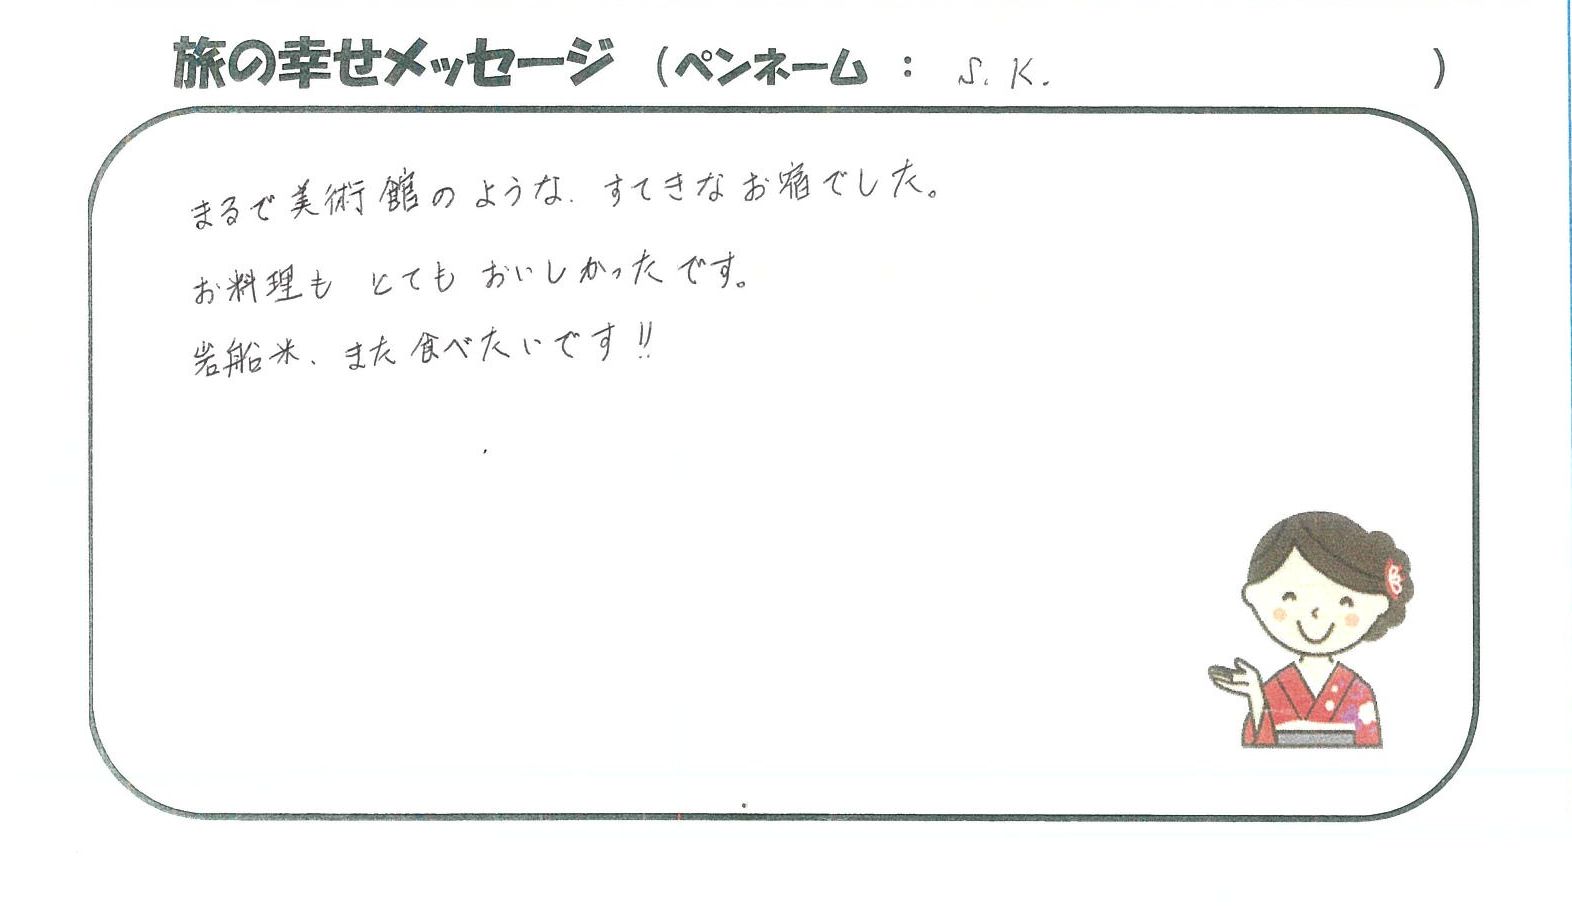 旅の幸せメッセージ（ペンネーム： S.K. ）
まるで美術館のような、すてきなお宿でした。
お料理も とても おいしかったです。
岩船米、また食べたいです!!